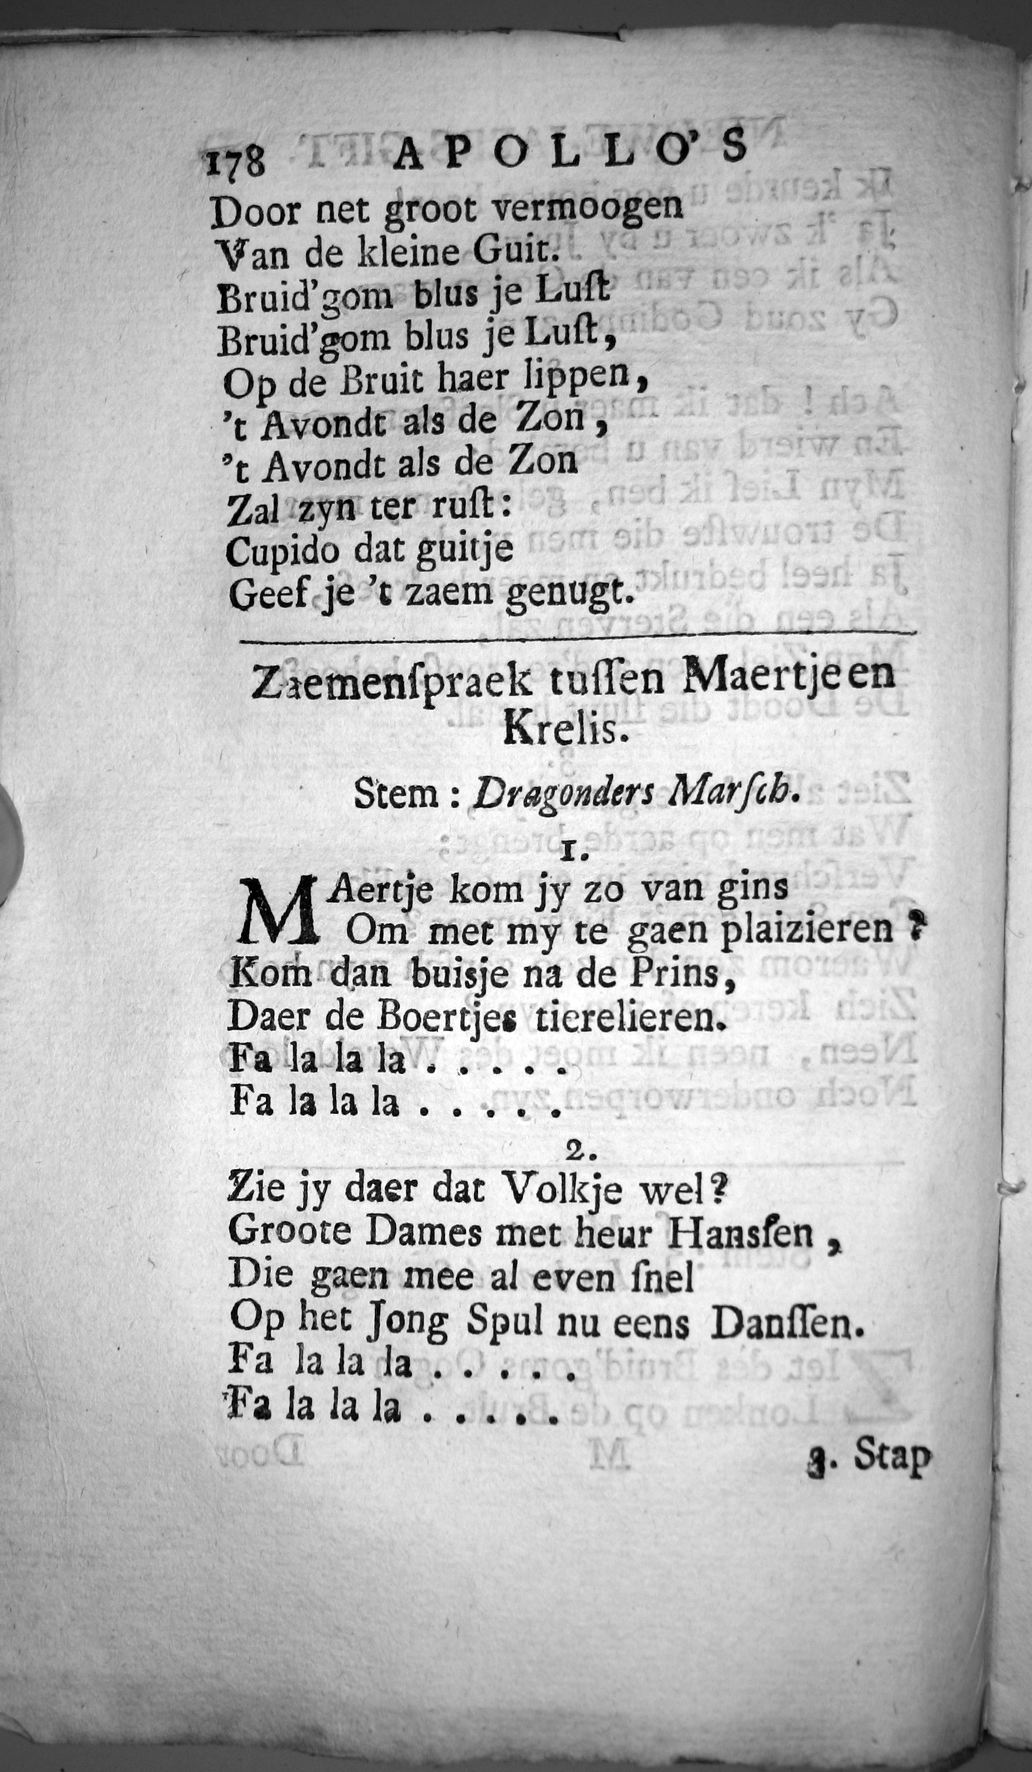 178 APOLLO'S
Door net groot vermoogen
Van de kleine Guit.
Bruid'gom blus je Luſt
Bruid'gom blus je Luſt,
Op de Bruit haer lippen,
't Avondt als de Zon,
't Avondt als de Zon
Zal zyn ter ruſt:
Cupido dat guitje
Geef je 't zaem genugt.
Zaemenſpraek tuſſen Maertje en
Krelis.
Stem: Dragonders Marſch.
1.
MAertje kom jy zo van gins
Om met my te gaen plaizieren?
Kom dan buisje na de Prins,
Daer de Boertjes tierelieren.
Fa la la la . . . . .
Fa la la la . . . . .
2.
Zie jy daer dat Volkje wel?
Groote Dames met heur Hansſen,
Die gaen mee al even ſnel
Op het Jong Spul nu eens Danſſen.
Fa la la la . . . . .
Fa la la la . . . . .
3. Stap